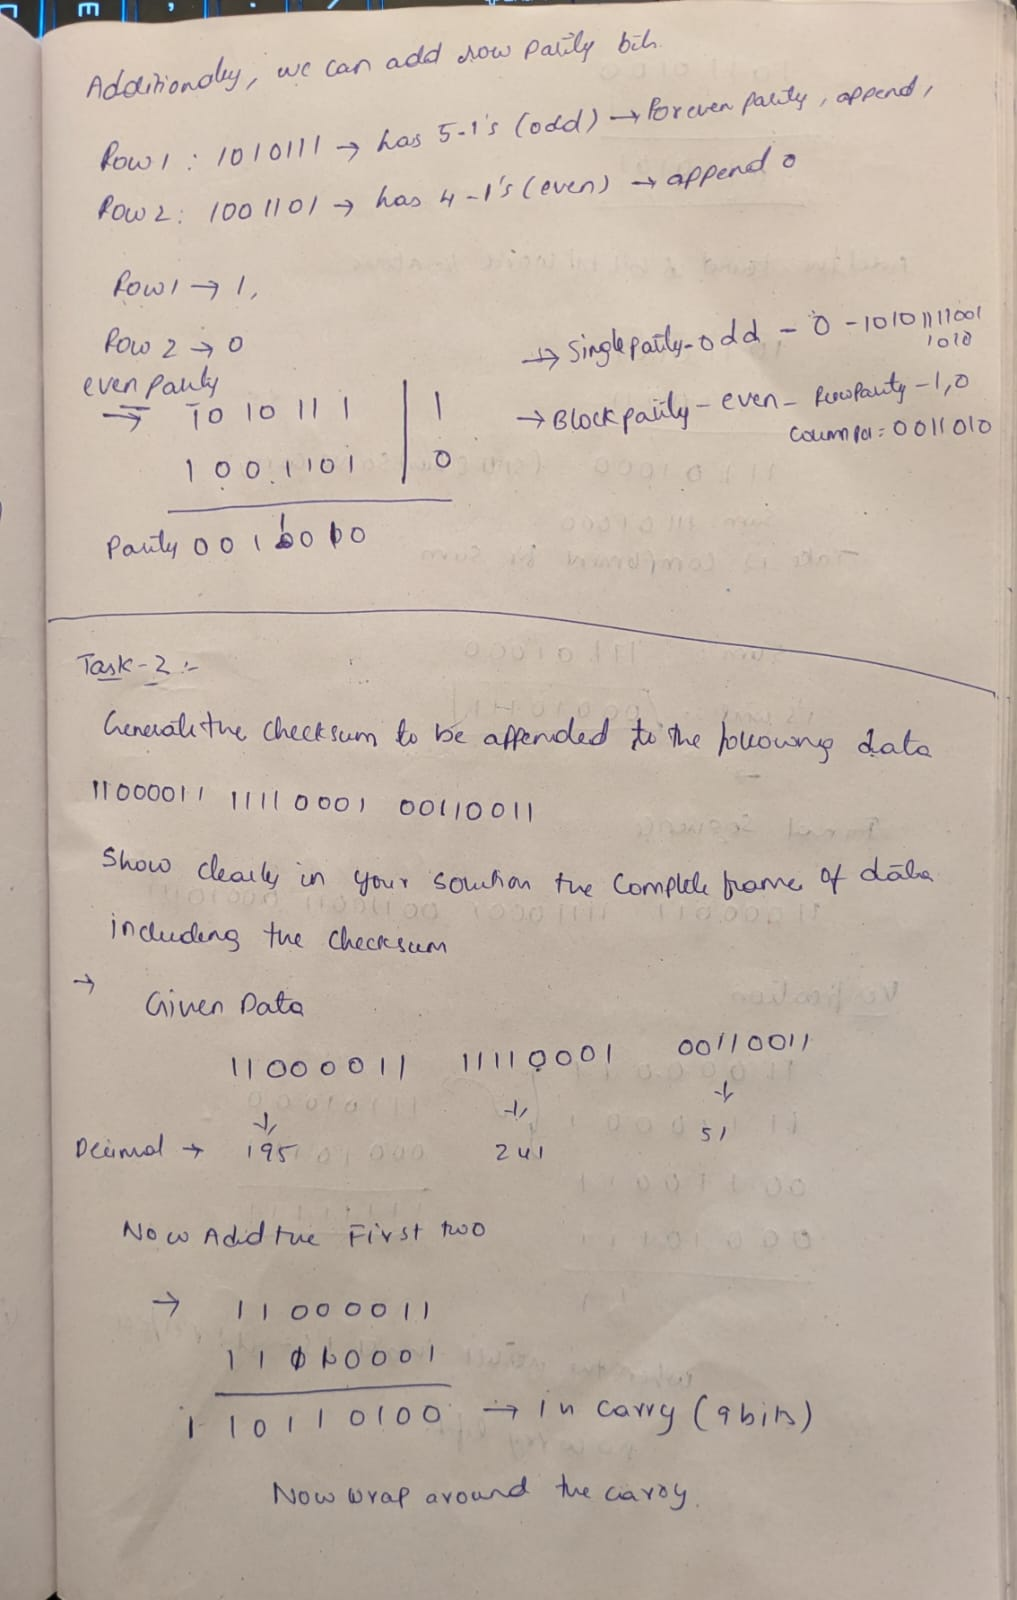 Additionaly, we can add row Parity bit.
Row 1 : 1010111 → has 5-1's (odd) → For even parity, append 1
Row 2 : 1001101 → has 4-1's (even) → append 0
Row 1 → 1,
Row 2 → 0
→ Single parity-odd - 0 - 10101111001
1010
even Parity
→ 1010111 | 1
→ Block parity - even - Row Parity - 1,0
Coloumn par = 0011010
1001101 | 0
Parity 0011010
Task-2 :-
Generate the checksum to be appended to the following data
11000011 11110001 00110011
Show clearly in your solution the complete frame of data
including the checksum
→ Given Data
11000011 11110001 00110011
Decimal → 195 241 51
Now Add the First two
→ 11000011
11110001
1 10110100 → in carry (9 bits)
Now wrap around the carry.